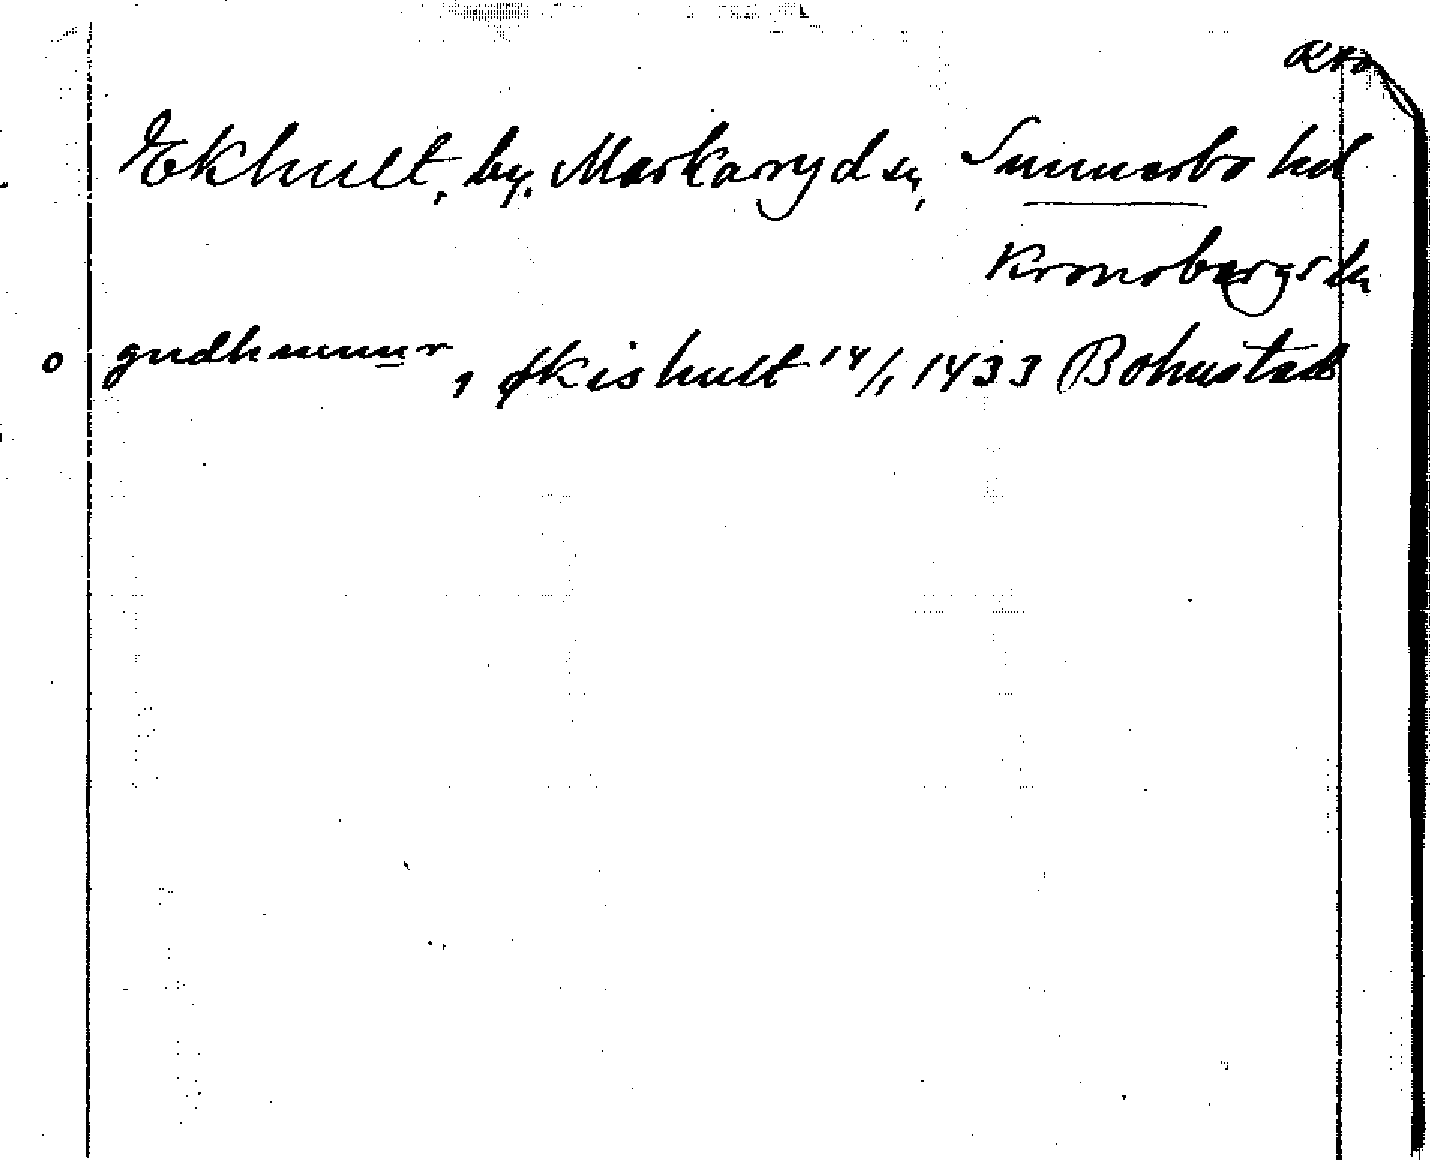 Ekhult, by, Markaryd sn, Sunnerbo hd
Kronobergs län
o gudhmunnr, Ekishult 14/1 1433 Bohustad